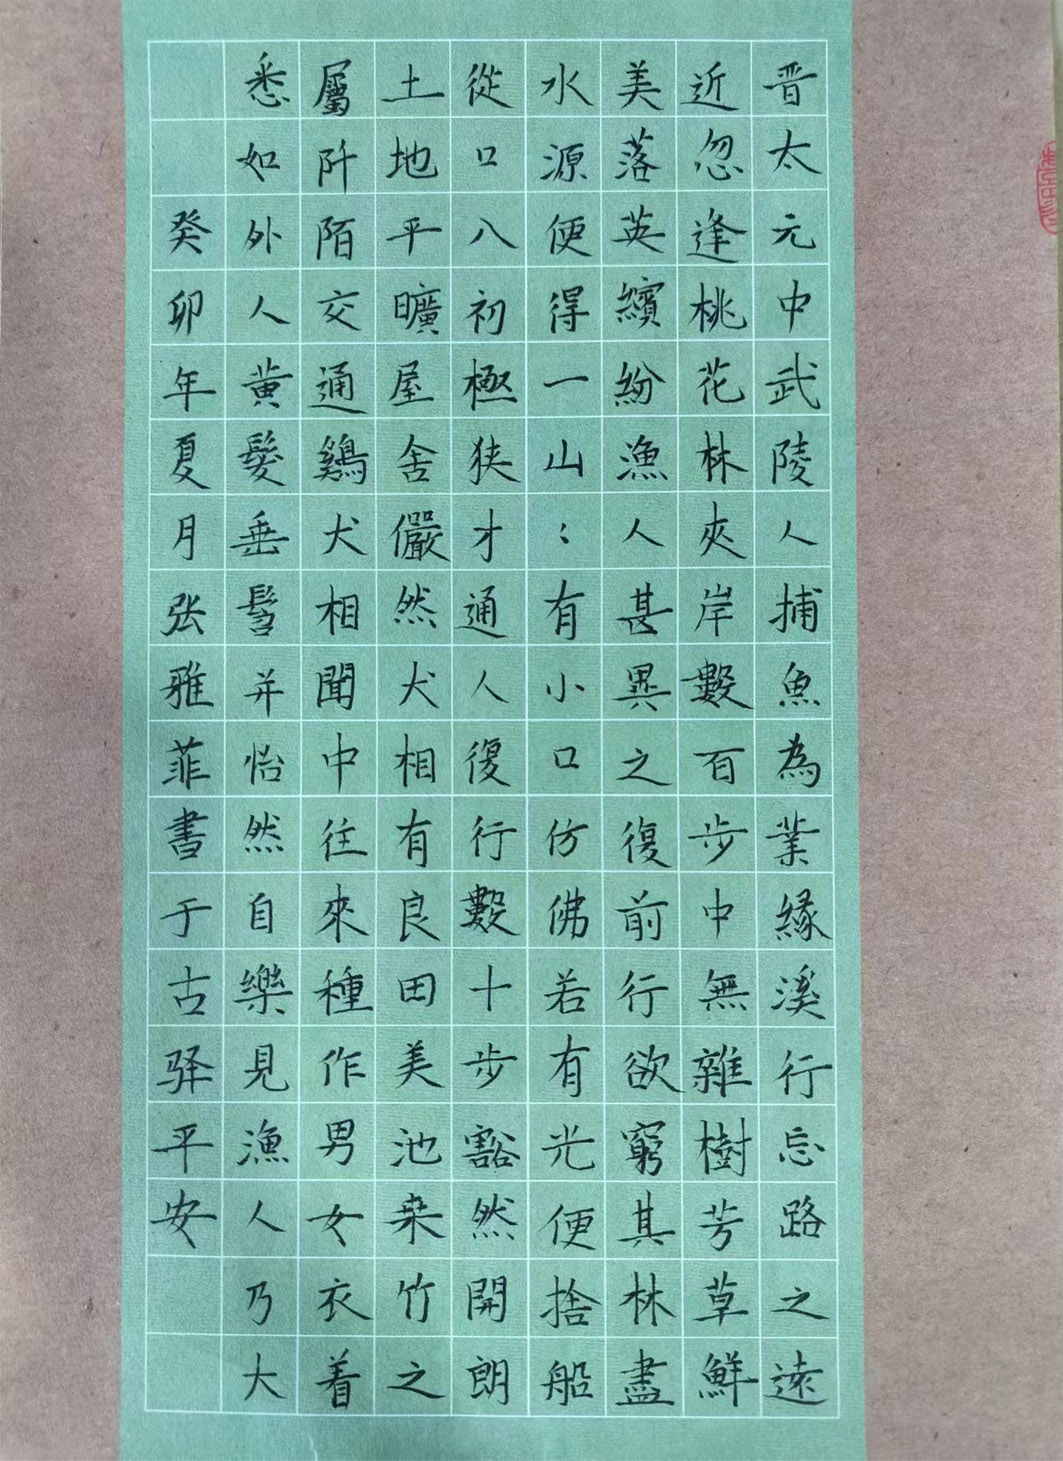 晋太元中武陵人捕魚為業緣溪行忘路之遠
近忽逢桃花林夾岸數百步中無雜樹芳草鮮
美落英繽紛漁人甚異之復前行欲窮其林盡
水源便得一山〻有小口仿佛若有光便捨船
從口八初極狹才通人復行數十步豁然開朗
土地平曠屋舍儼然犬相有良田美池桒竹之
屬阡陌交通鷄犬相聞中往來種作男女衣着
悉如外人黄髮垂髫并怡然自樂見漁人乃大
癸卯年夏月张雅菲書于古驿平安